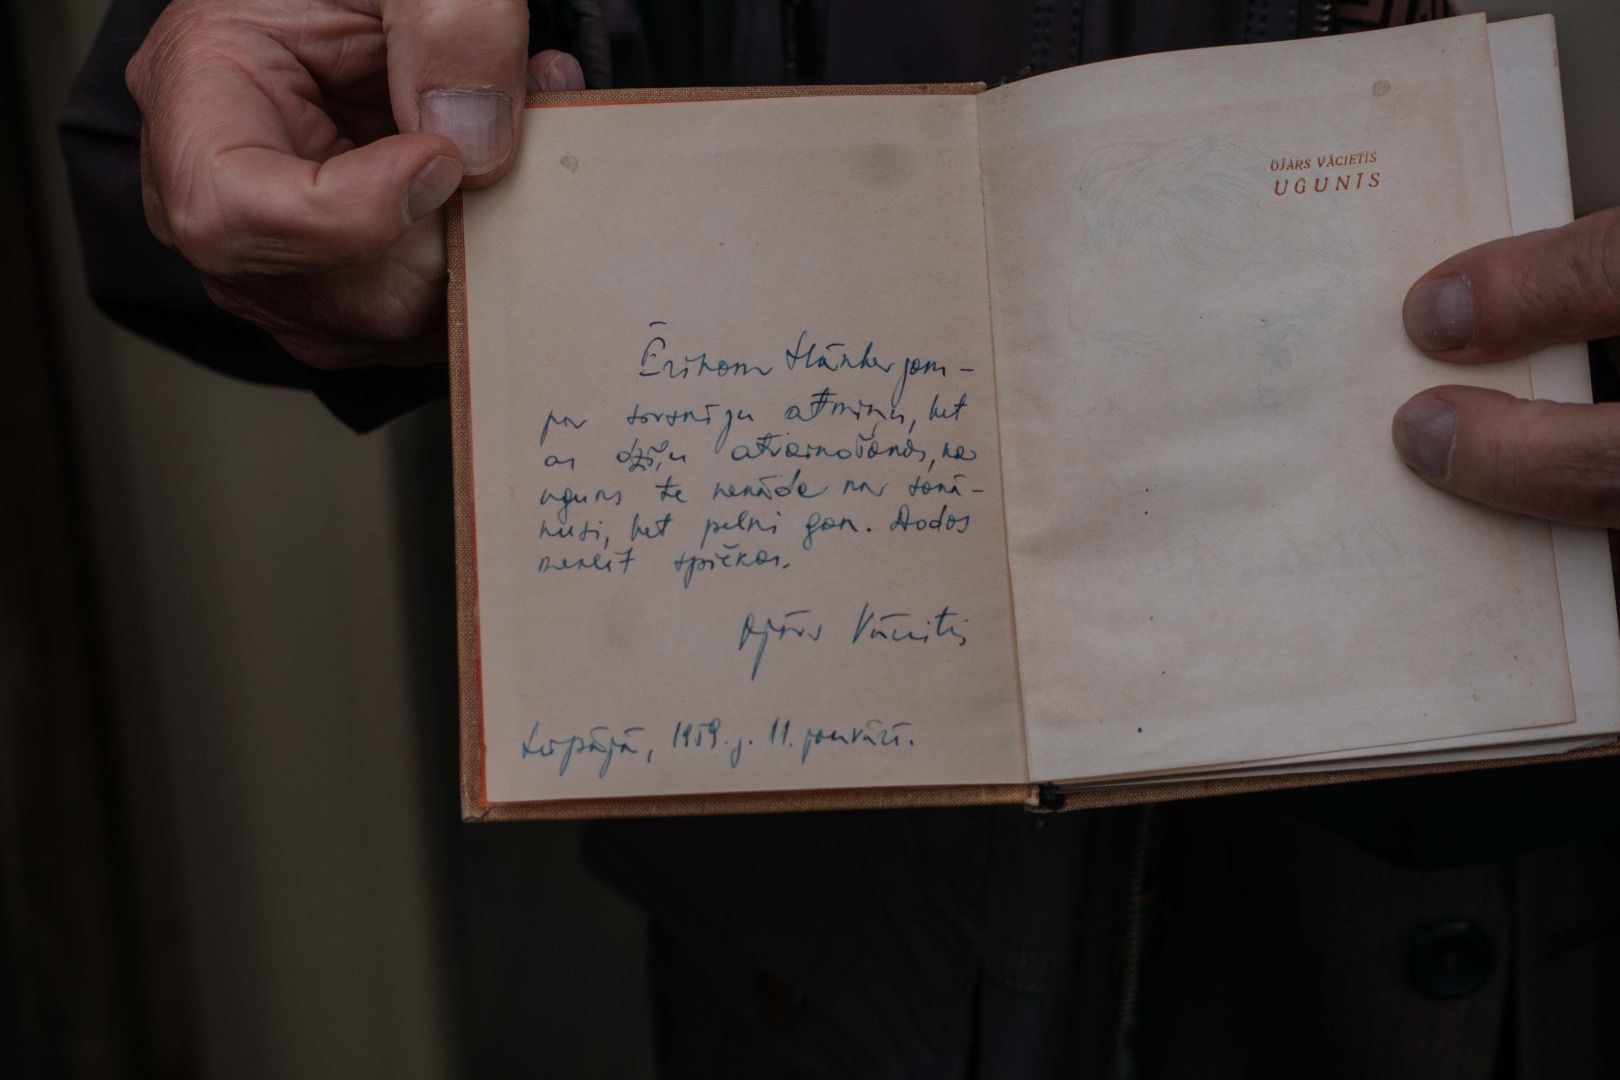 Ērikam Hānbergam –
par sirsnīgu atmiņu, bet
ar dziļu atvainošanos, ka
uguns te nekāda nav sanā-
kusi, bet pelni gan. Dodos
meklēt spičkas.
Ojārs Vācietis
Liepājā, 1959. g. 11. janvārī.
OJĀRS VĀCIETIS
UGUNĪS